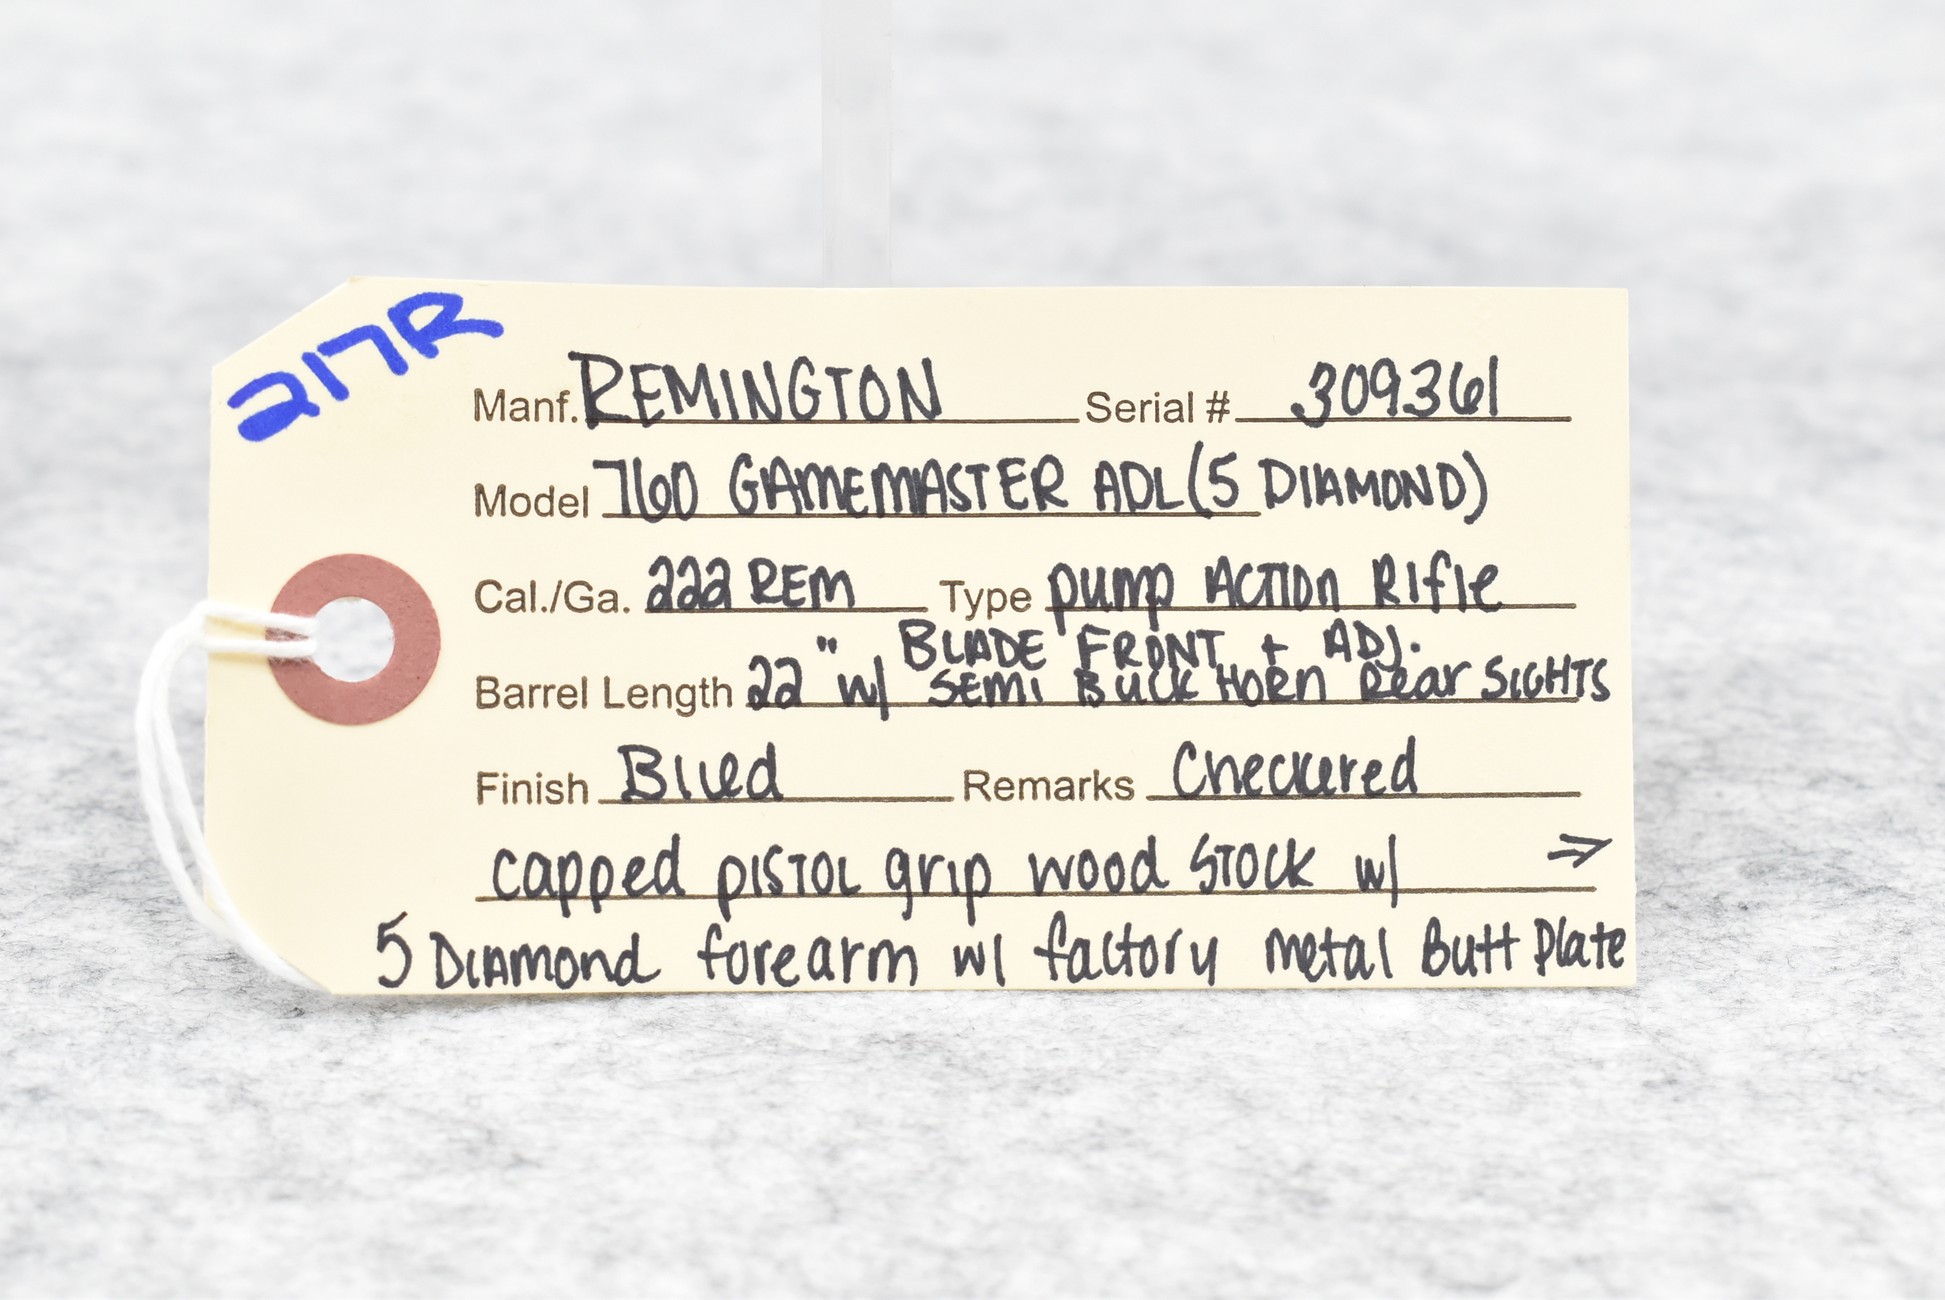 217R
Manf. REMINGTON Serial # 309361
Model 760 GAMEMASTER ADL (5 DIAMOND)
Cal./Ga. 222 REM Type pump ACTION Rifle
BLADE FRONT + ADJ.
Barrel Length 22" w/ SEMI BUCK HORN Rear SIGHTS
Finish Blued Remarks Checkered
capped PISTOL grip wood STOCK w/ →
5 DIAMOND forearm w/ factory metal Butt Plate